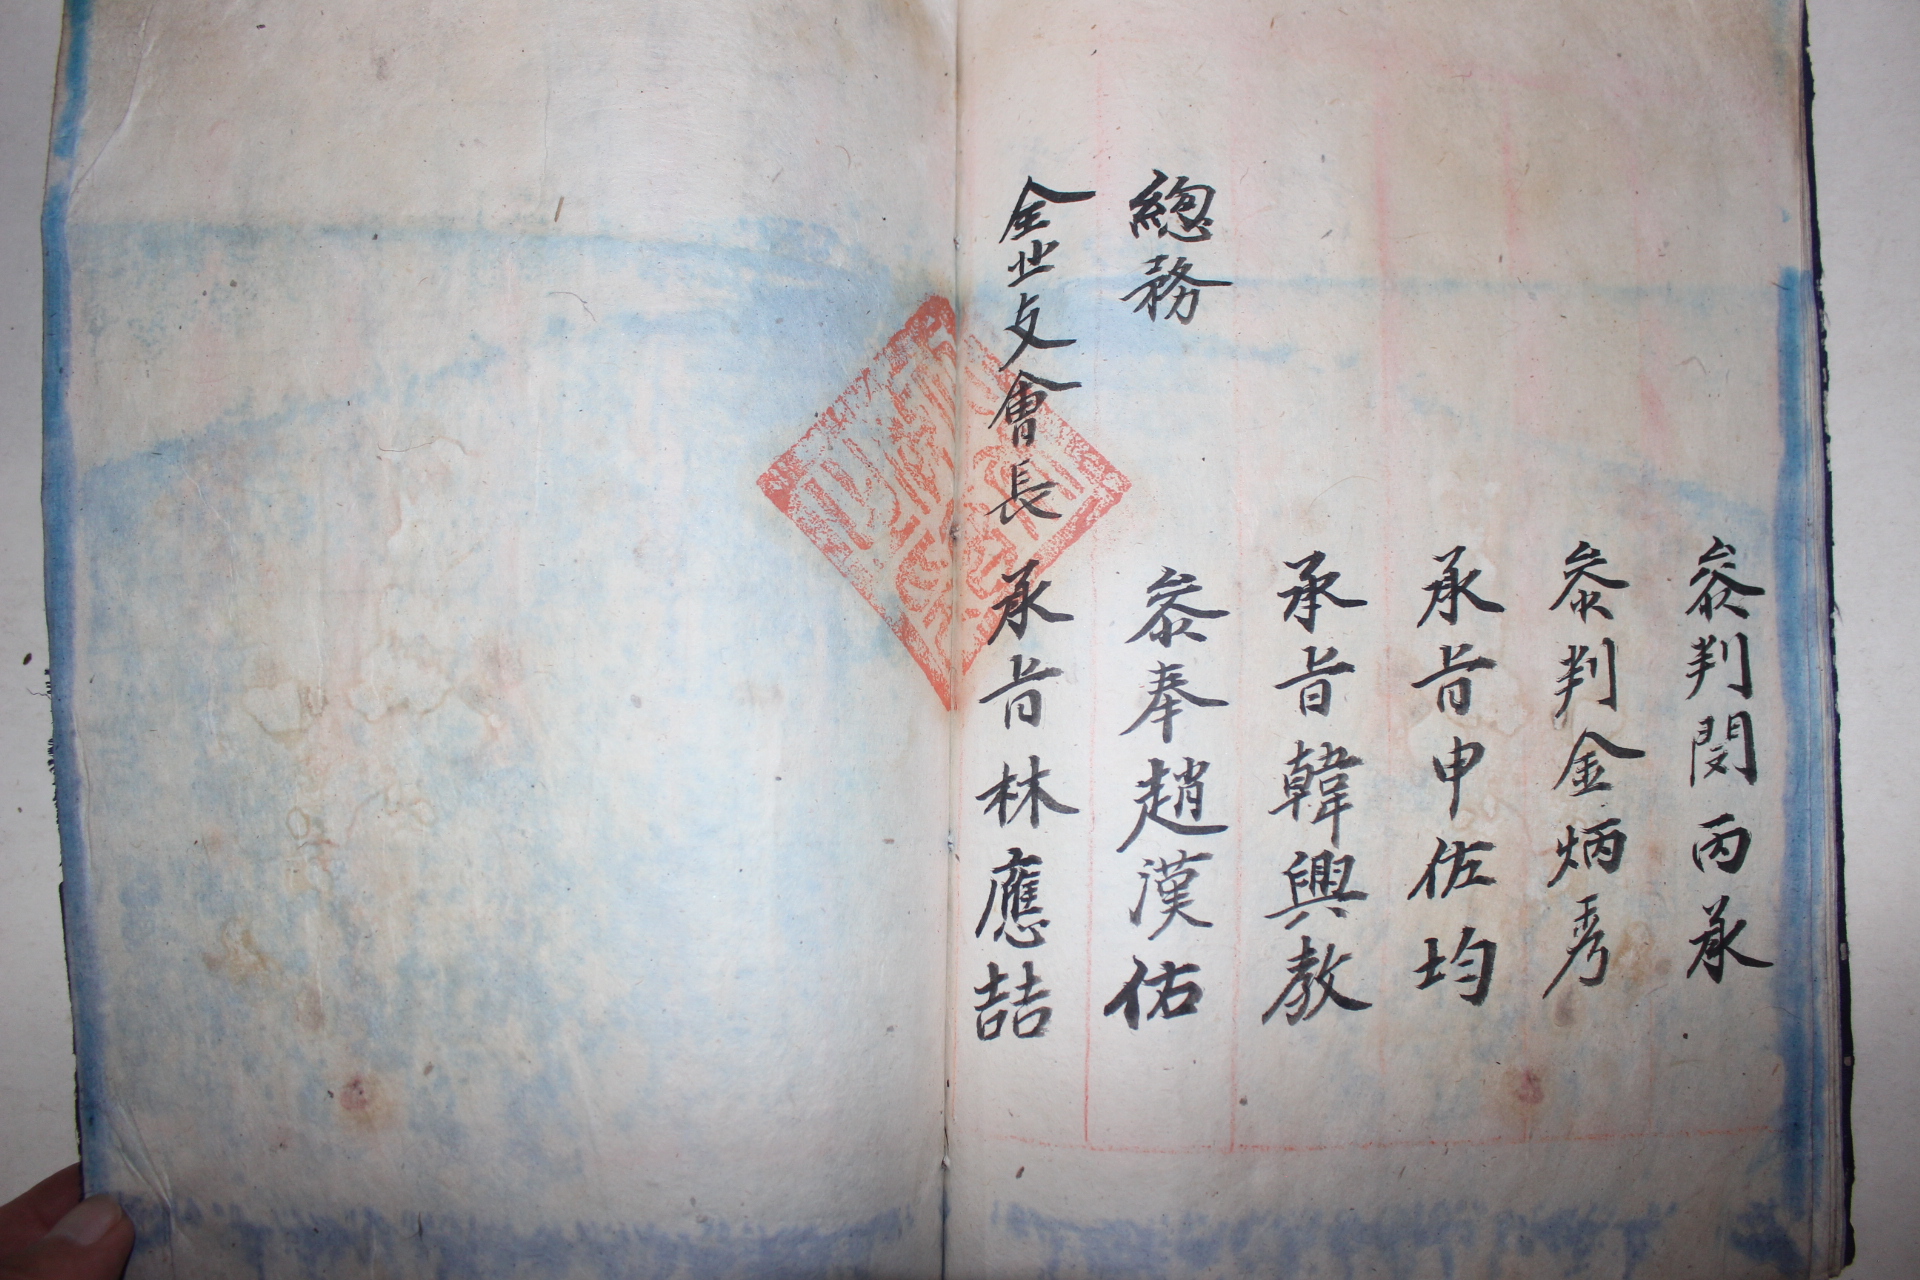 參判閔丙承
參判金炳秀
承旨申佐均
承旨韓興敎
總務 參奉趙漢佑
支會長 承旨林應喆